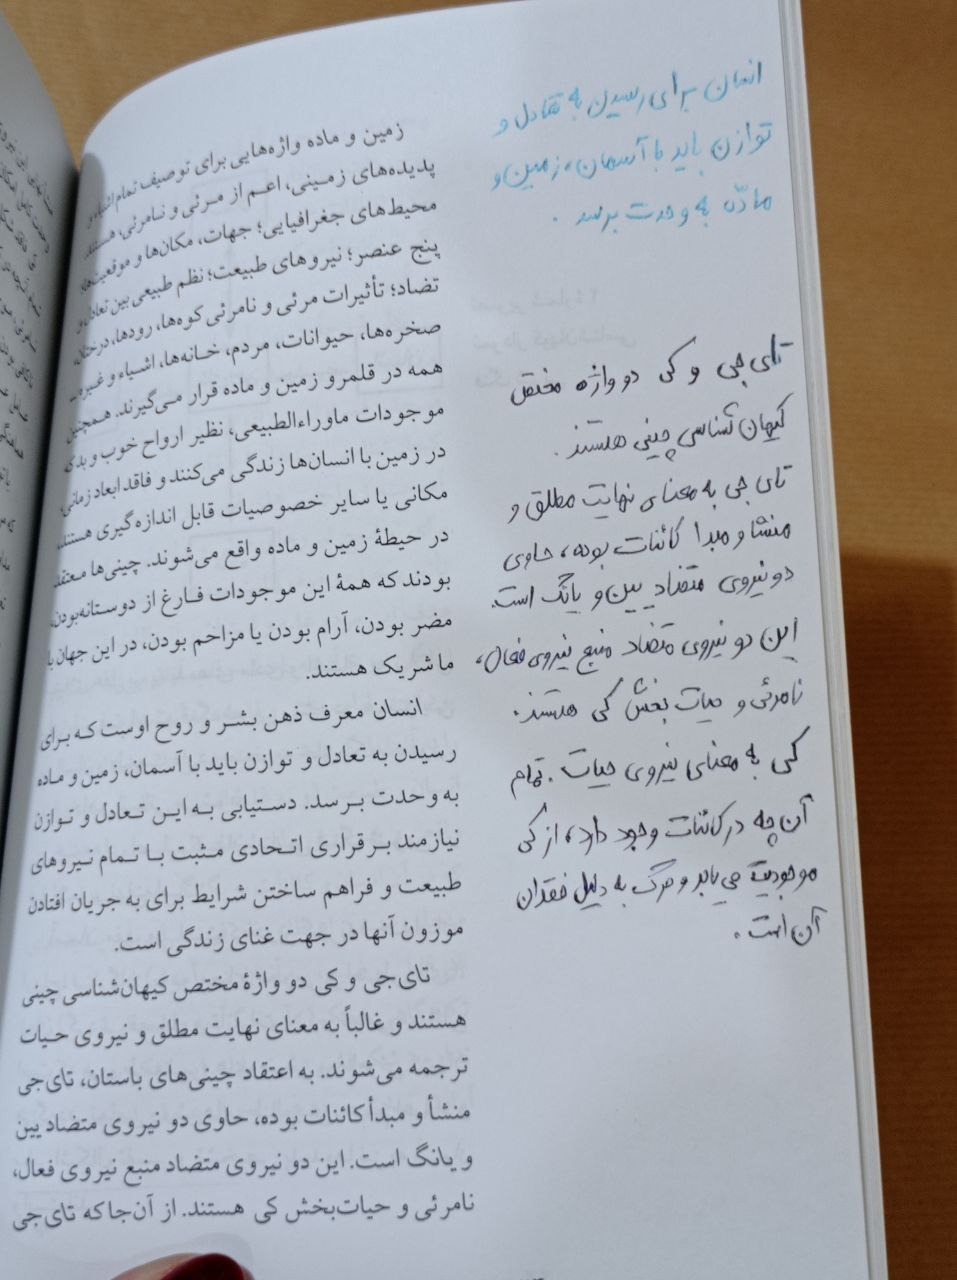 زمین و ماده واژه‌هایی برای توصیف تمام اشیاء و
پدیده‌های زمینی، اعم از مرئی و نامرئی، هستند.
محیط‌های جغرافیایی؛ جهات، مکان‌ها و موقعیت‌ها؛
پنج عنصر؛ نیروهای طبیعت؛ نظم طبیعی بین تعادل و
تضاد؛ تأثیرات مرئی و نامرئی کوه‌ها، رودها، درختان،
صخره‌ها، حیوانات، مردم، خانه‌ها، اشیاء و غیره ـ
همه در قلمرو زمین و ماده قرار می‌گیرند. همچنین
موجودات ماوراءالطبیعی، نظیر ارواح خوب و بد که
در زمین با انسان‌ها زندگی می‌کنند و فاقد ابعاد زمانی،
مکانی یا سایر خصوصیات قابل اندازه‌گیری هستند،
در حیطهٔ زمین و ماده واقع می‌شوند. چینی‌ها معتقد
بودند که همهٔ این موجودات فارغ از دوستانه‌بودن،
مضر بودن، آرام بودن یا مزاحم بودن، در این جهان با
ما شریک هستند.
انسان معرف ذهن بشر و روح اوست که برای
رسیدن به تعادل و توازن باید با آسمان، زمین و ماده
به وحدت برسد. دستیابی به این تعادل و توازن
نیازمند برقراری اتحادی مثبت با تمام نیروهای
طبیعت و فراهم ساختن شرایط برای به جریان افتادن
موزون آنها در جهت غنای زندگی است.
تای‌جی و کی دو واژهٔ مختص کیهان‌شناسی چینی
هستند و غالباً به معنای نهایت مطلق و نیروی حیات
ترجمه می‌شوند. به اعتقاد چینی‌های باستان، تای‌جی
منشأ و مبدأ کائنات بوده، حاوی دو نیروی متضاد یین
و یانگ است. این دو نیروی متضاد منبع نیروی فعال،
نامرئی و حیات‌بخش کی هستند. از آن‌جا که تای‌جی
انسان برای رسیدن به تعادل و
توازن باید با آسمان، زمین و
مادّه به وحدت برسد.
تای جی و کی دو واژه مختص
کیهان شناسی چینی هستند.
تای جی به معنای نهایت مطلق و
منشا و مبدا کائنات بوده، حاوی
دو نیروی متضاد یین و یانگ است.
این دو نیروی متضاد منبع نیروی فعال،
نامرئی و حیات بخش کی هستند.
کی به معنای نیروی حیات. تمام
آن چه در کائنات وجود دارد، از کی
موجودیت می یابد و مرگ به دلیل فقدان
آن است.